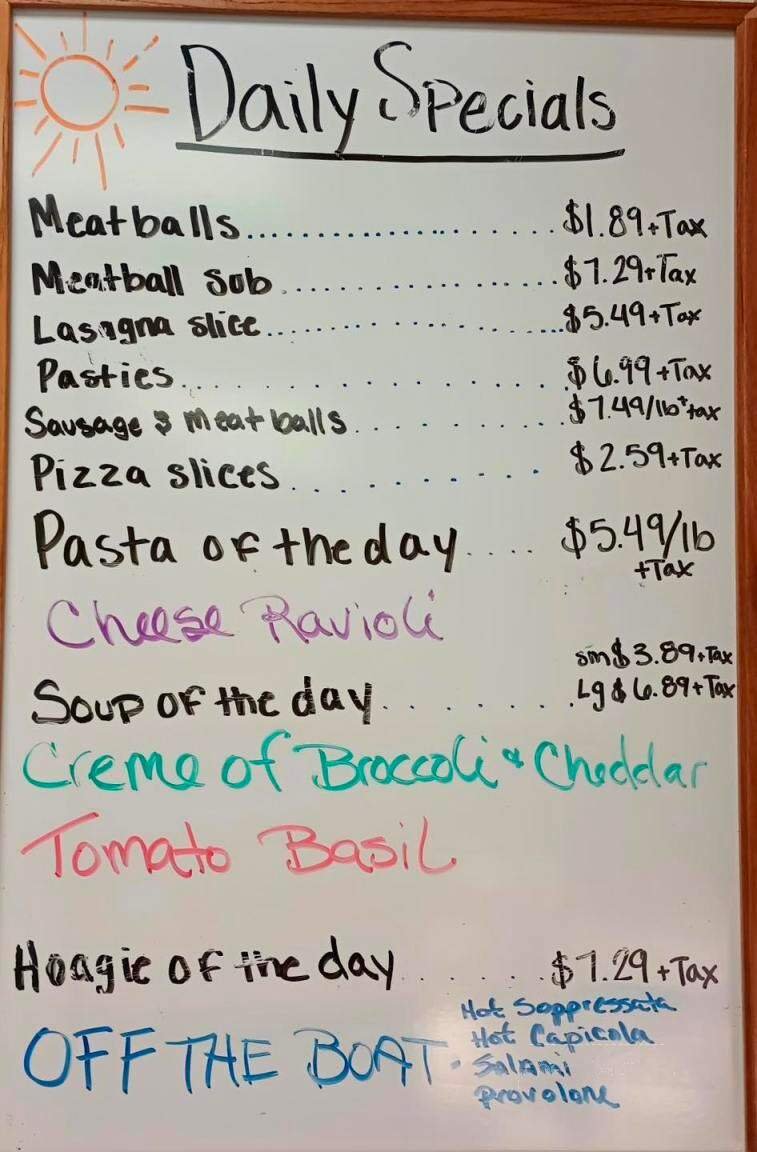 Daily Specials
Meatballs....................... $1.89+Tax
Meatball Sub.................... $7.29+Tax
Lasagna slice................... $5.49+Tax
Pasties......................... $6.99+Tax
Sausage & meatballs............. $7.49/lb+tax
Pizza slices.................... $2.59+Tax
Pasta of the day.... $5.49/lb
+Tax
Cheese Ravioli
sm $3.89+Tax
Soup of the day........ Lg $6.89+Tax
Creme of Broccoli & Cheddar
Tomato Basil
Hoagie of the day..... $7.29+Tax
OFF THE BOAT - Hot Soppressata
Hot Capicola
Salami
Provolone